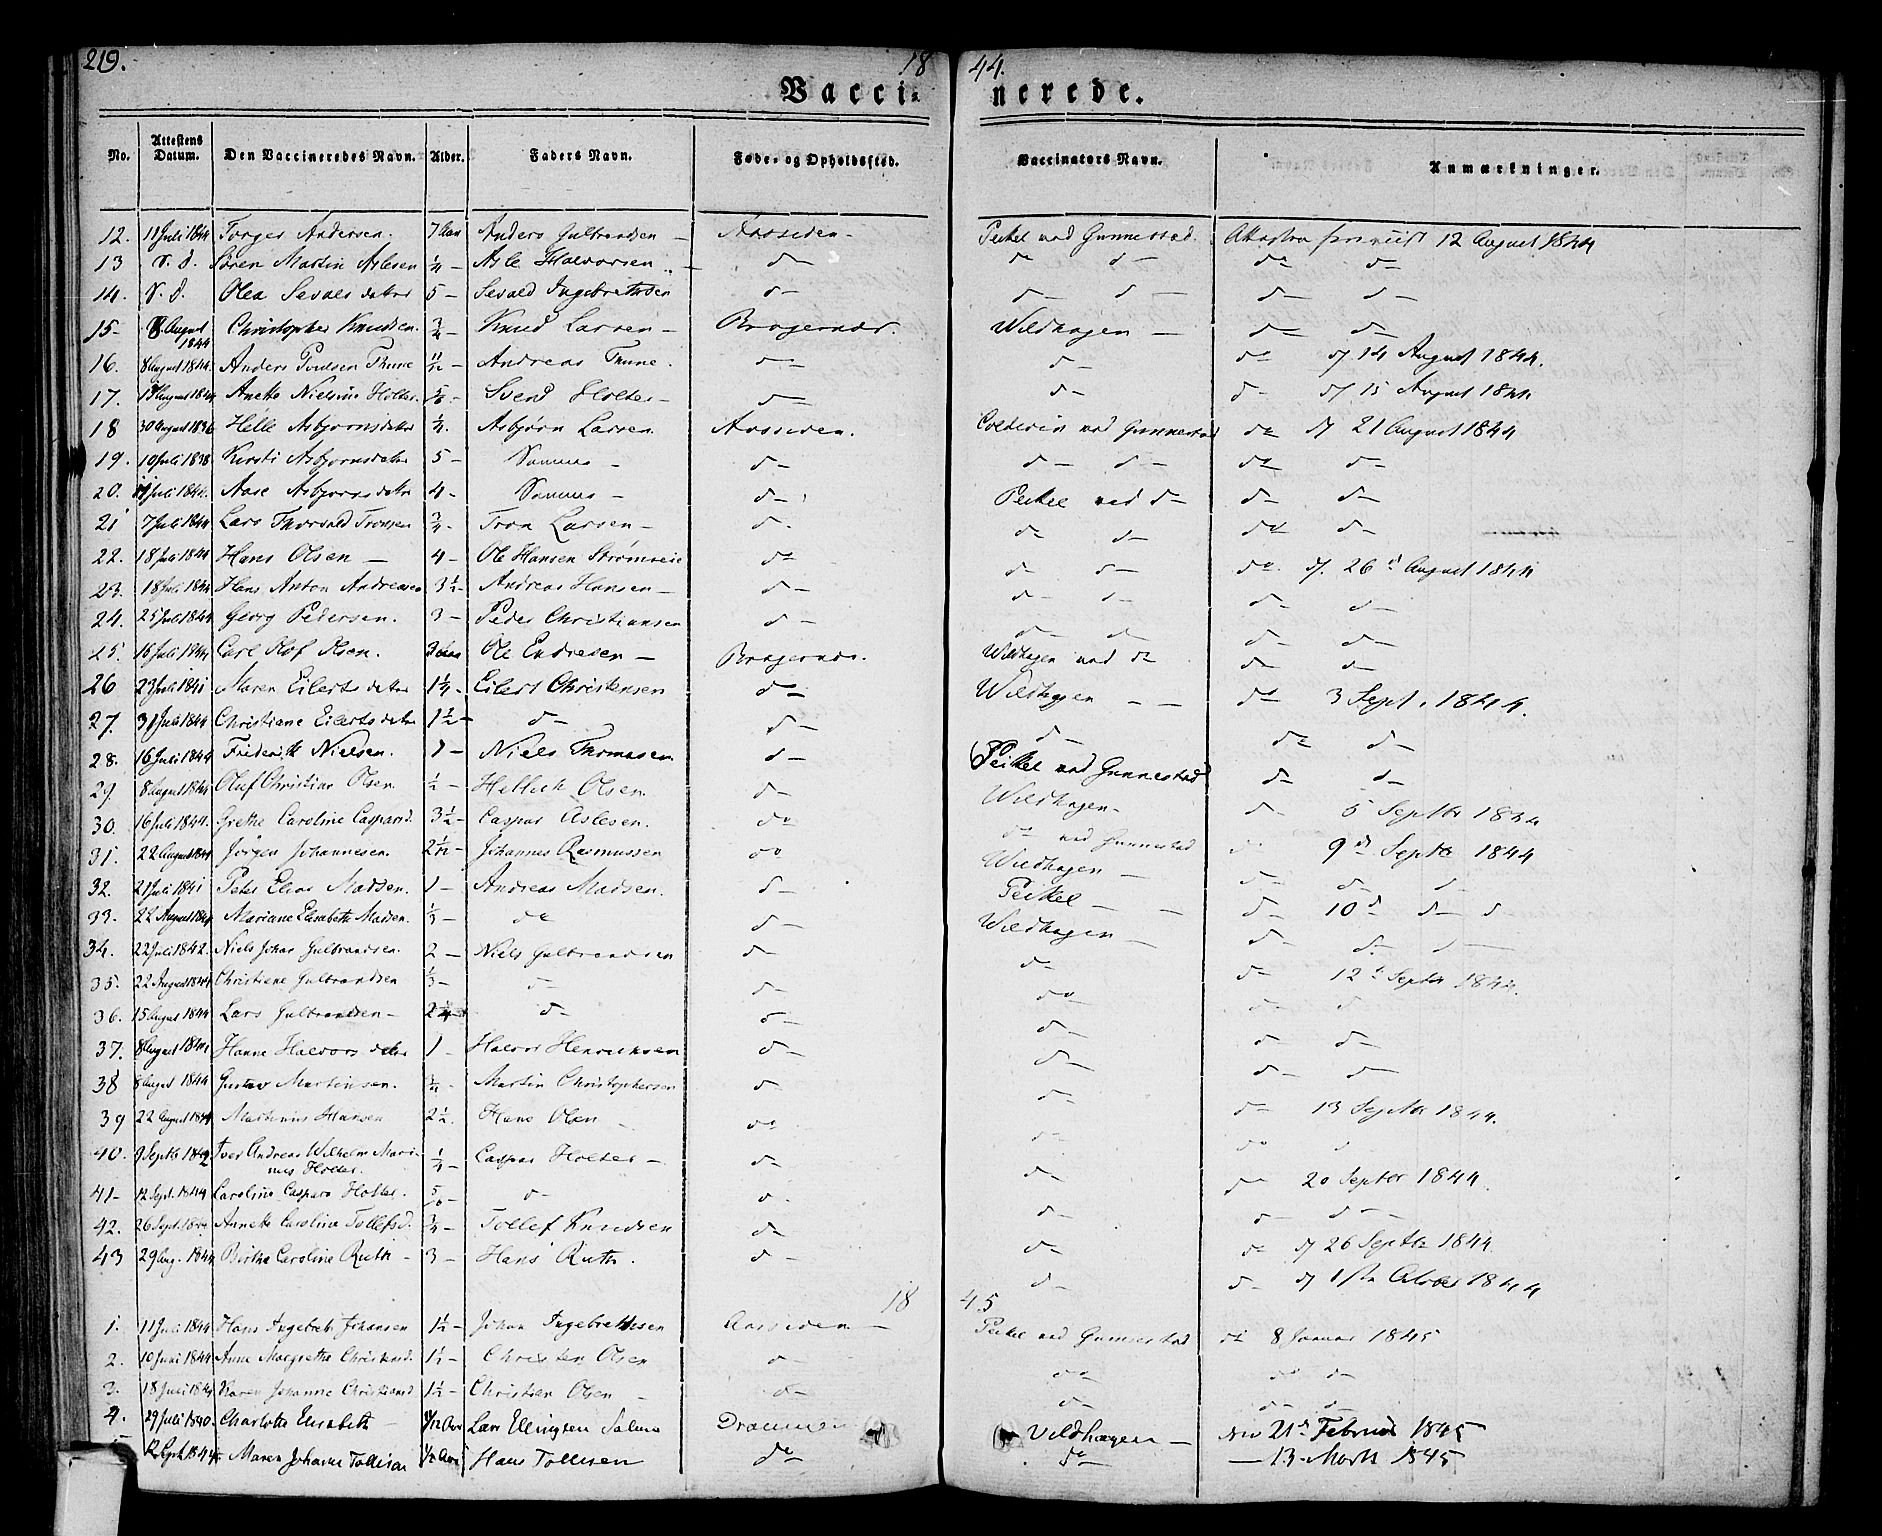 219. 18 44.
Vacci- nerede.
No. Attestens Datum. Den Vaccineredes Navn. Alder. Faders Navn. Føde- og Opholdssted. Vaccinators Navn. Anmærkninger.
12. 11 Juli 1844 Torger Andersen. 7 Aar Anders Gulbrandsen — Aassiden - Peckel ved Gunnestad. Attesten 12 August 1844
13 d. d. Søren Martin Aslesen ¼ — Asle Halvorsen — d— d— d— d— d—
14. d. d. Olea Sevalsdatter 5 — Sevald Ingebrethsen d— d— d— d— d—
15- 8 August 1844 Christopher Knudsen. ¾ — Knud Larsen — Bragernæs. Wildhagen — d— d—
16. 8 August 1844. Anders Poulsen Thune 11/12 — Andreas Thune. d— d— d— 14 August 1844.
17. August 1844 Anette Nielsine Holter. — Svend Holter — d— d— d— 15 August 1844
18 30 August 1836 Helle Asbjørnsdatter ¼. Asbjørn Larsen Aassiden. ved Gunnestad d— 21 August 1844
19. 10 Juli 1838 Kirsti Asbjørnsdatter 5 — Samme — d— d— d— d— d—
20. Juli 1844. Aase Asbjørnsdatter 4 - Samme — d— Peckel ved d— d— d—
21 7 Juli 1844 Lars Thorvald Tronsen ¾ - Tron Larsen — d- d— d— d— d—
22. 18 Juli 1844 Hans Olsen — 4 - Ole Hansen Strømseie d— d— d— d— 26 August 1844
23. 18 Juli 1844 Hans Anton Andreasen 3½ - Andreas Hansen — d— d— d— d— d—
24. 25 Juli 1844 Georg Pedersen. 3 — Peder Christiansen d— d— d— d— d—
25. 16 Juli 1844 Carl Olsen. 3 Aar Ole Endresen — Bragernæs. Wildhagen ved d— d— d—
26 23 Juli 1841 Maren Eilertsdatter 1¼ - Eilert Christensen d— Wildhagen — — d— 3 Sept. 1844.
27. 31 Juli 1844 Christiane Eilertsdatter 1½ — d— d— d— d— d—
28. 16 Juli 1844 Frederik Nielsen. 1 — Niels Thomasen d— Peckel ved Gunnestad d— d—
29. 8 August 1844 Oluf Christian Olsen ½ — Olsen. d— Wildhagen - d— 5 Septbr 1844
30. 16 Juli 1844. Grethe Caroline Caspersd. 3½ — Caspar Aslesen. d— d— ved Gunnestad d— 9 Septbr 1844
31. 22 August 1844 Jørgen Johannesen. Johannes Rasmussen d— Wildhagen — d— d— d—
32. 21 Juli 1841 Peter Elias Madsen. 1 — Andreas Madsen. d— Peckel — — d— 10 d— d—
33. 22 August 1844 Mariane Elisabeth Madsen. ⅓ — d— d— Wildhagen — d— d— d—
34. 22 Juli 1842. Niels Johan Gulbrandsen. 2 — Niels Gulbrandsen d— d— d— 12 Septbr 1844.
35. 22 August 1844 Christiane Gulbrandsen ⅓ — d— d— d— d— d—
36. 15 August 1844 Lars Gulbrandsen — 2 d— d— d— d— d—
37. 8 August Hanne Halvorsdatter 1 — Halvor Henriksen d— d— d— d—
38 8 August 1844 Gustav Martinsen. ¼ - Martin Christophersen d— d— d— 13 Septbr 1844.
39 22 August 1844 Mathinus Hansen 2½. Hans Olsen — d— d— d— d
40. 9 Septbr 1842 Iver Andreas Wilhelm Mari-
nus Holter. ¼ — Caspar Holter — d— d— d— 20 Septbr 1844.
41 - 12 Sept. 1844 Caroline Caspara Holter. d— d- d— d— d—
42. 26 Sept. 1844 Annette Caroline Tollefsd. ¾ — Tollef Knudsen d— d— d— 26 Septbr 1844
43 29 Aug. 1844 Birthe Caroline Ruth - 3 — Hans Ruth. d— d— d— 1ste 1844
18 45
1. 11 Juli 1844 Hans Ingebreth Johansen 1½ — Johan Ingebrethsen Aassiden — Peckel ved Gunnestad d— 8 Januar 1845
2. 10 Juni 1844 Anne Margrethe Christensd. 1½ - Christen Olsen d— d— d— d—
3. 18 Juli 1844 Karen Johanne Christiansd 1½ — Christian Olsen — d— d— d— d—
4. 29 Juli 1840. Charlotte Elisabeth — Lars Ellingsen Drammen Vildhagen — 21 Februar 1845
12 Sept. 1844 Maren Johanne Tollisen Hans Tollisen d— d— — 13 - Marts 1845